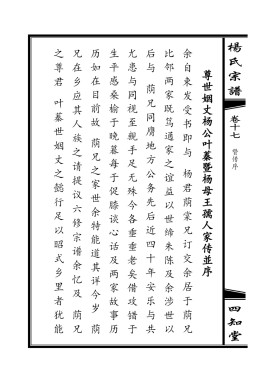 楊氏宗譜
卷十七
暨傳序
四知堂
尊世姻丈杨公叶蓁暨杨母王孺人家传並序
余自束发受书即与 杨君荫棠兄订交余居于荫兄
比邻两家既笃通家之谊益以世缔朱陈及余涉世以
后与 荫兄同膺地方公务先后近四十年安乐与共
尤患与同视至亲手足无殊今各垂垂老矣借攻错于
生平感桑榆于晚暮每于促膝谈心话及两家故事历
历如在目前故 荫兄之家世余特能道其详今岁 荫
兄在乡应其人族之请提议六修宗谱余忆及 荫兄
之尊君 叶蓁世姻丈之懿行足以昭式乡里者犹能